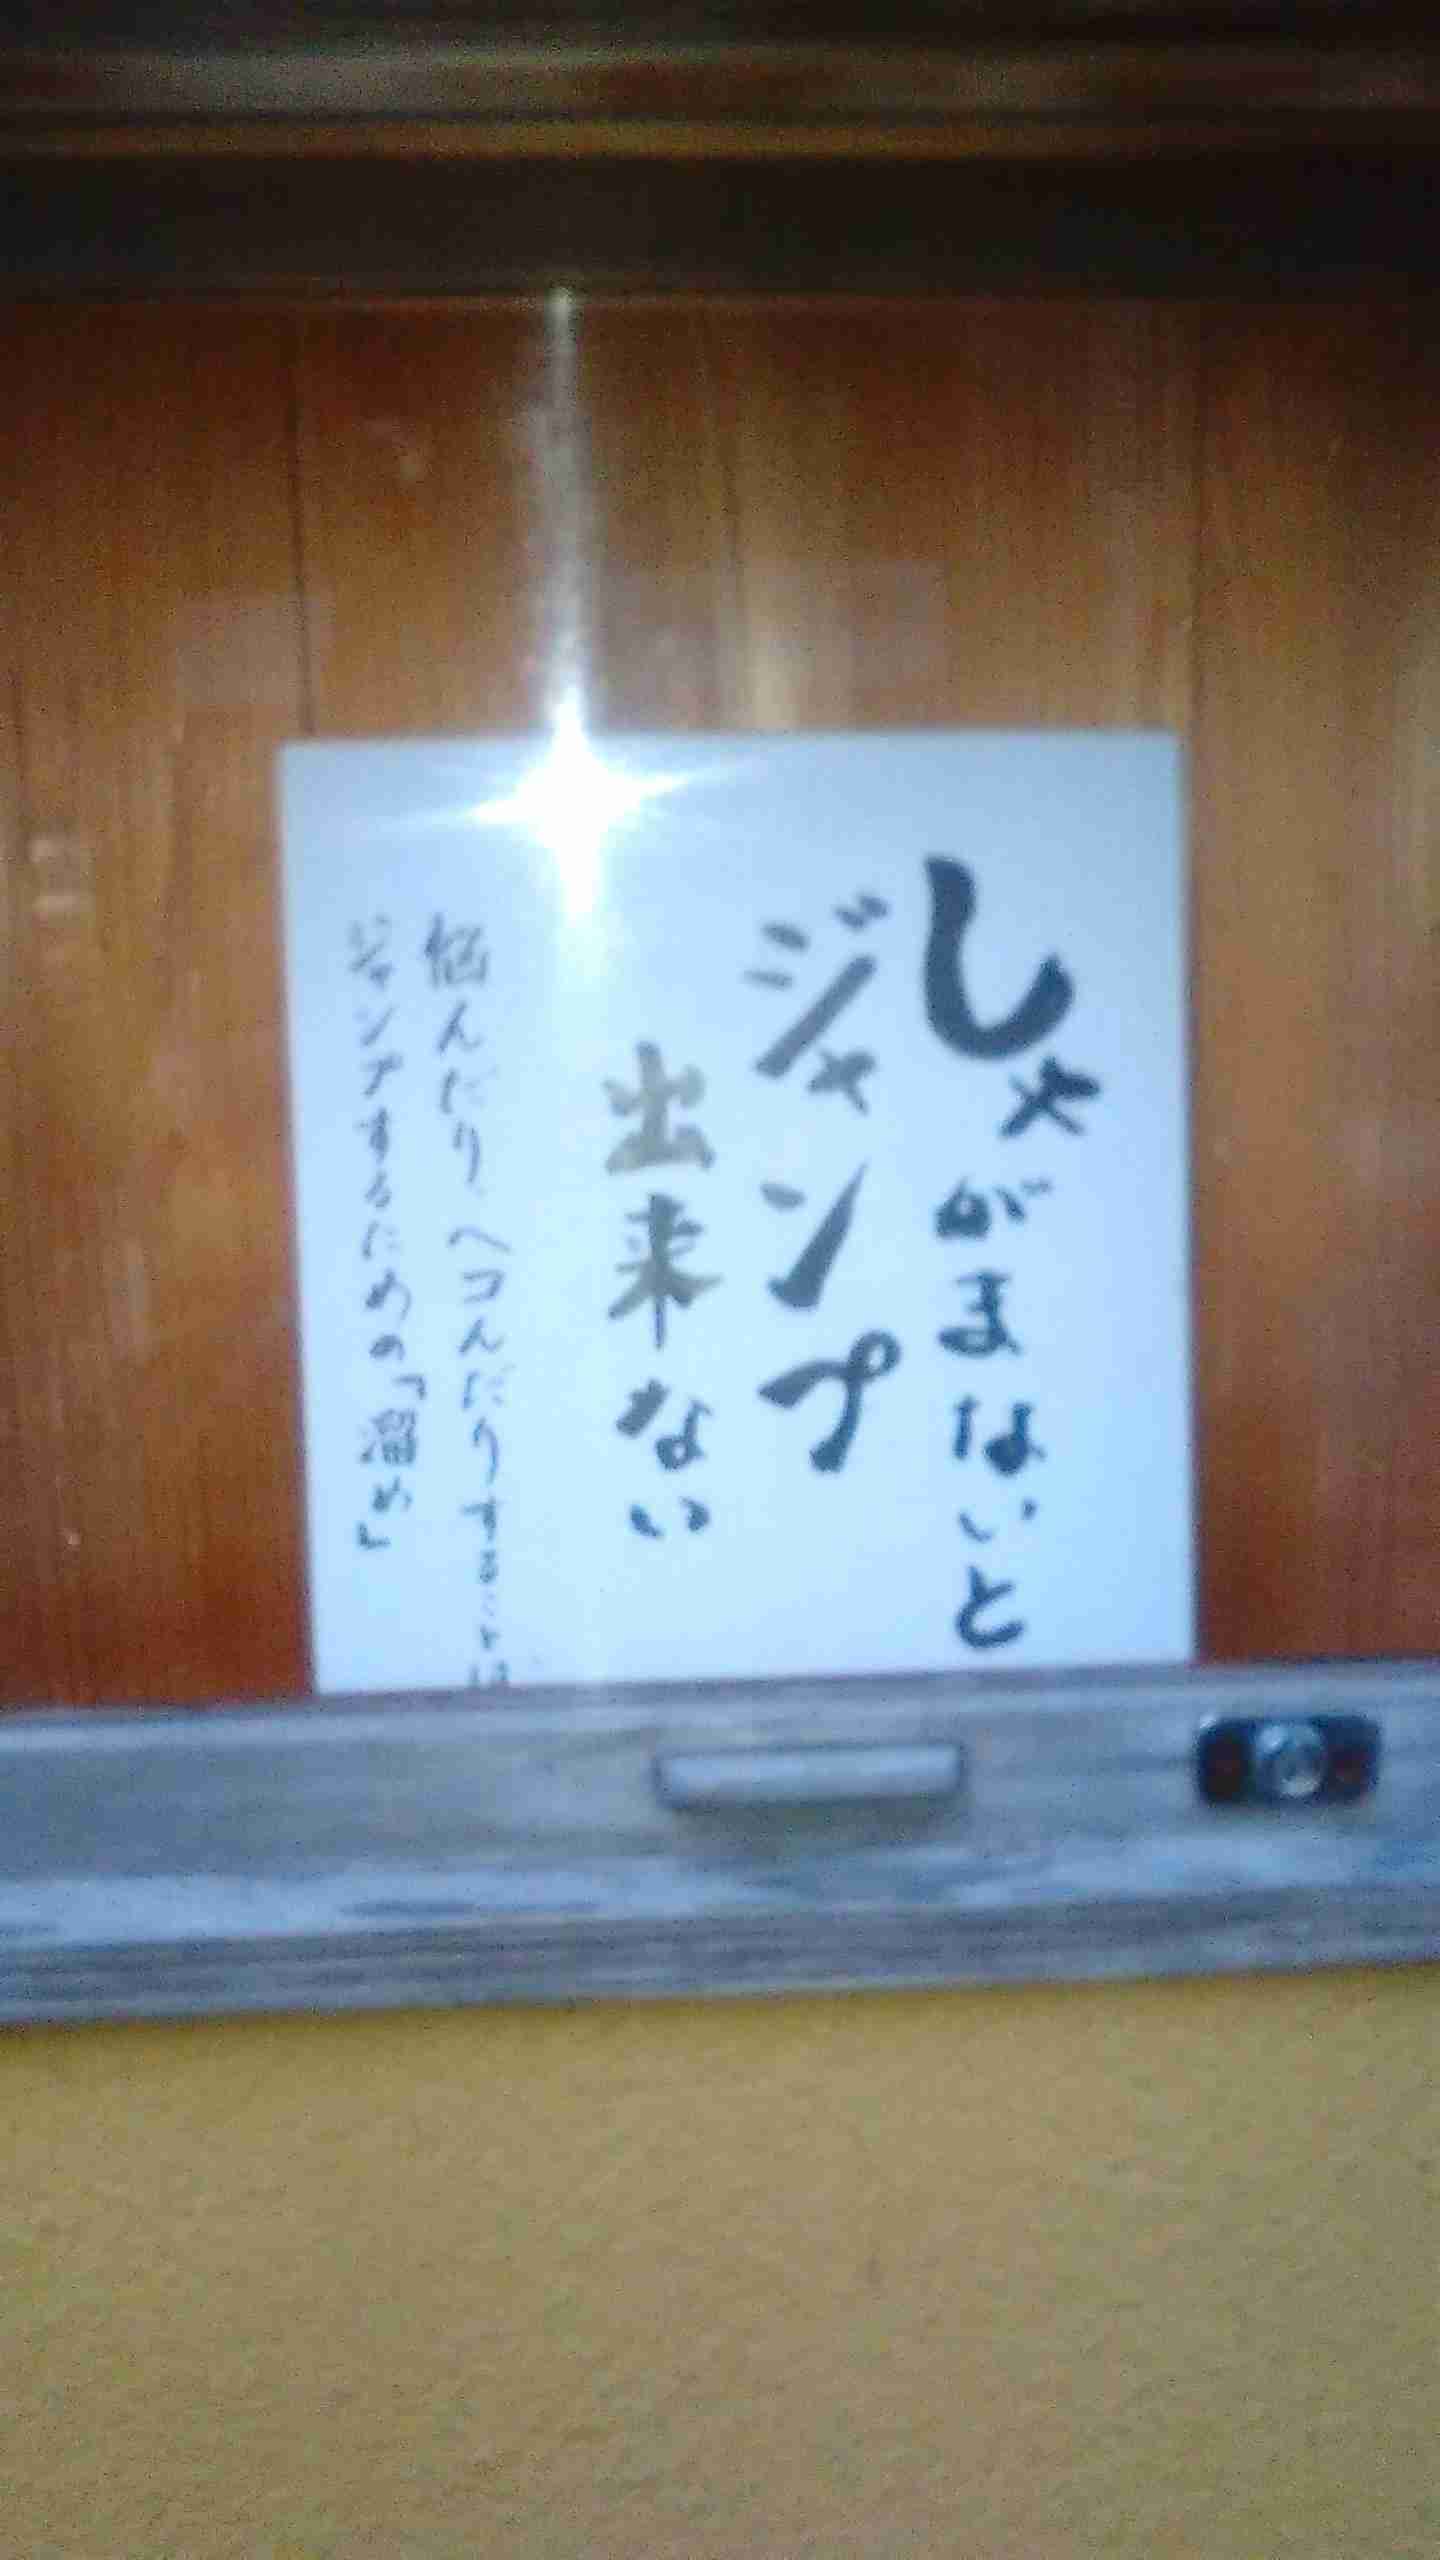 しゃがまないと
ジャンプ
出来ない
悩んだり、ヘコんだりすることは
ジャンプするための「溜め」